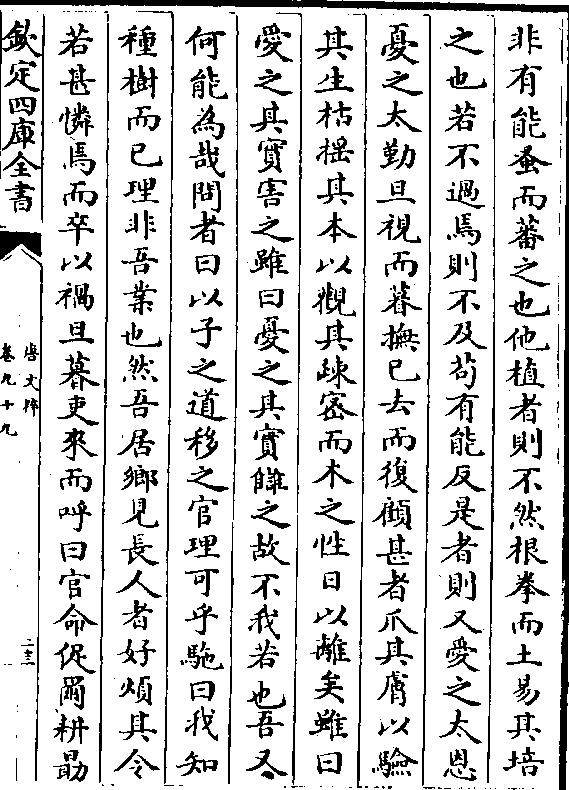 非有能蚤而蕃之也他植者則不然根拳而土易其培
之也若不過焉則不及茍有能反是者則又愛之太恩
憂之太勤旦視而暮撫已去而復顧甚者爪其膚以驗
其生枯揺其本以觀其疎宻而木之性日以離矣雖曰
愛之其實害之雖曰憂之其實讎之故不我若也吾又
何能為哉問者曰以子之道移之官理可乎駞曰我知
種樹而已理非吾業也然吾居鄉見長人者好煩其令
若甚憐焉而卒以禍旦暮吏來而呼曰官命促爾耕朂
欽定四庫全書
唐文粹
卷九十九